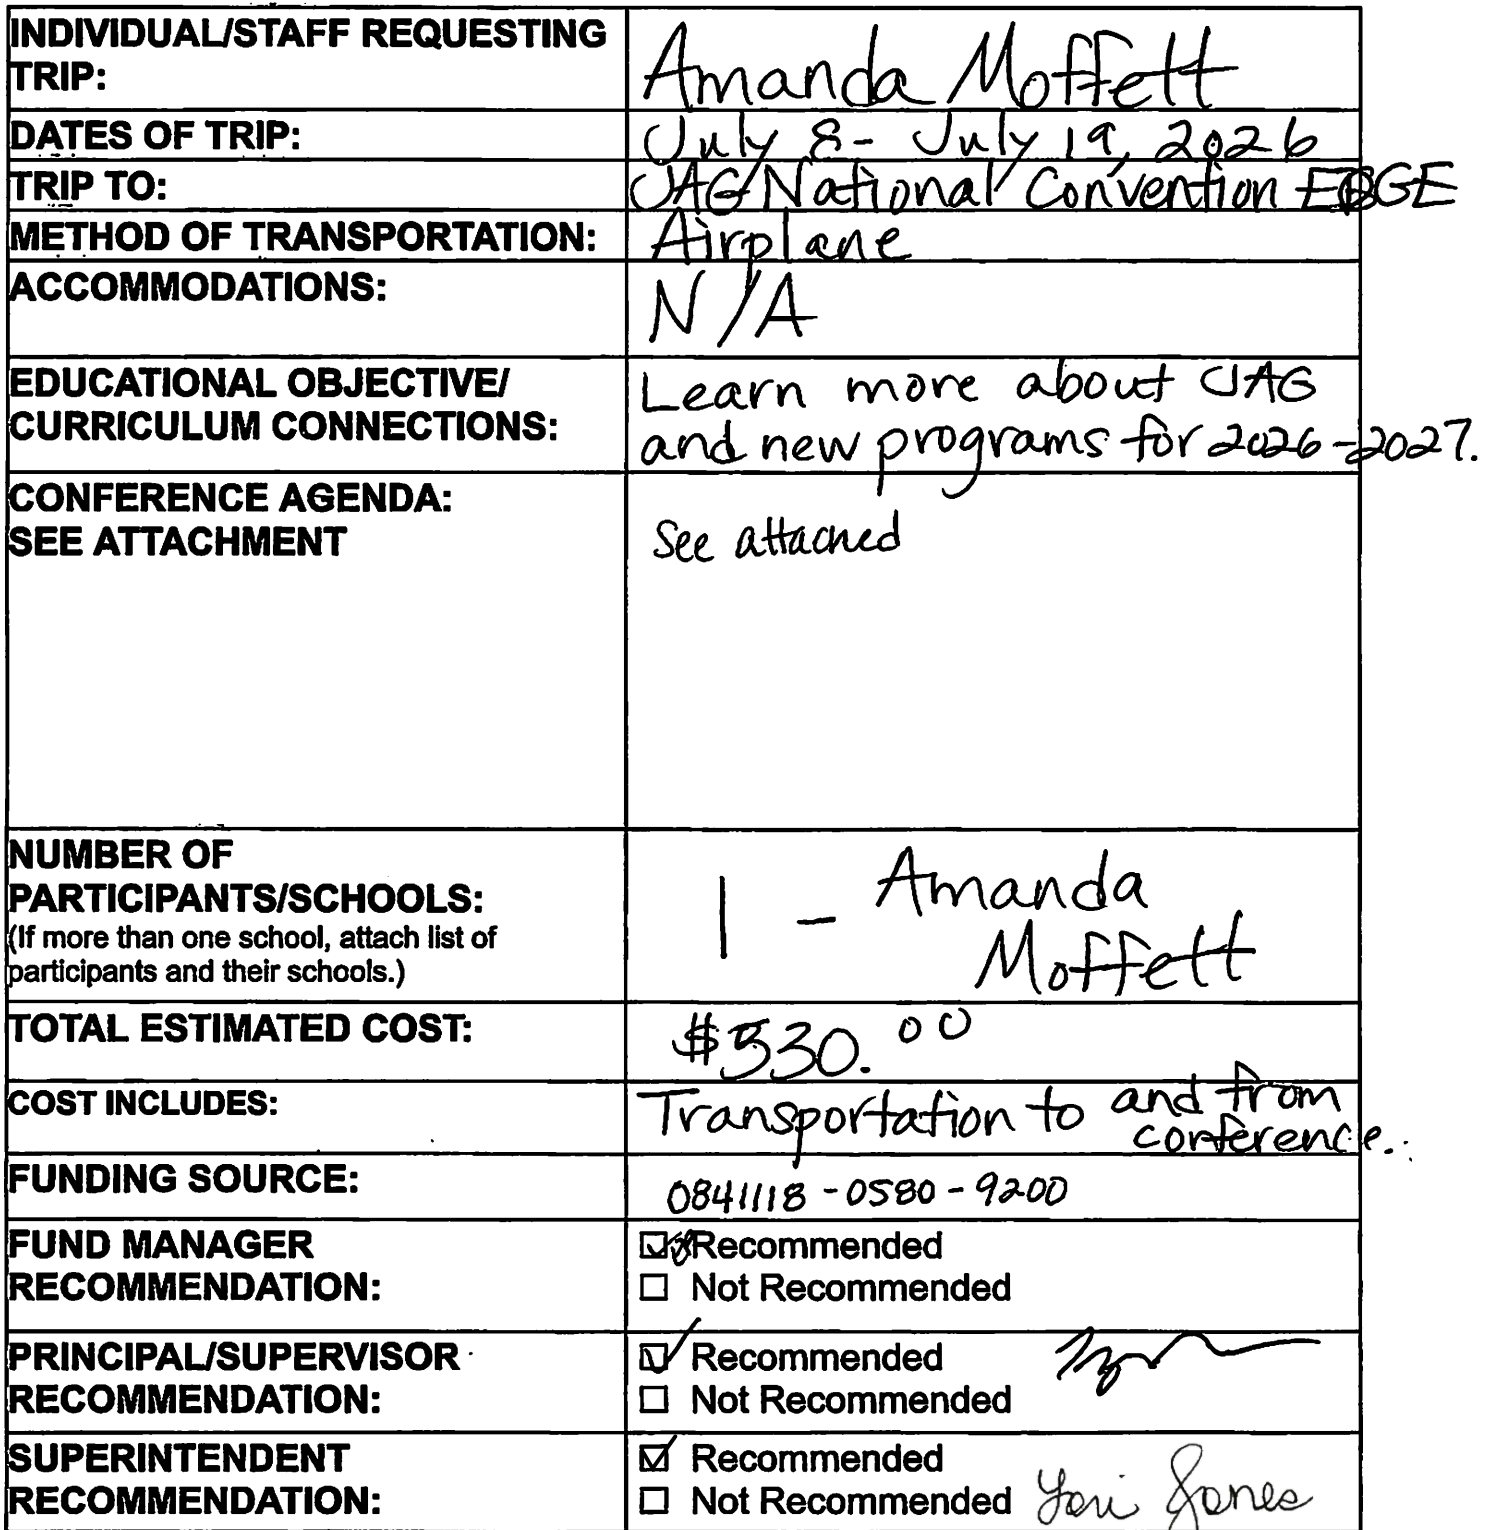 INDIVIDUAL/STAFF REQUESTING
TRIP:
Amanda Moffett
DATES OF TRIP:
July 8 - July 19, 2026
TRIP TO:
JAG National Convention EDGE
METHOD OF TRANSPORTATION:
Airplane
ACCOMMODATIONS:
N/A
EDUCATIONAL OBJECTIVE/
CURRICULUM CONNECTIONS:
Learn more about JAG
and new programs for 2026-2027.
CONFERENCE AGENDA:
SEE ATTACHMENT
See attached
NUMBER OF
PARTICIPANTS/SCHOOLS:
(If more than one school, attach list of
participants and their schools.)
1 - Amanda
Moffett
TOTAL ESTIMATED COST:
$530.00
COST INCLUDES:
Transportation to and from
conference.
FUNDING SOURCE:
0841118-0580-9200
FUND MANAGER
RECOMMENDATION:
☑ Recommended
☐ Not Recommended
PRINCIPAL/SUPERVISOR
RECOMMENDATION:
☑ Recommended
☐ Not Recommended
SUPERINTENDENT
RECOMMENDATION:
☑ Recommended
☐ Not Recommended Lori Jones